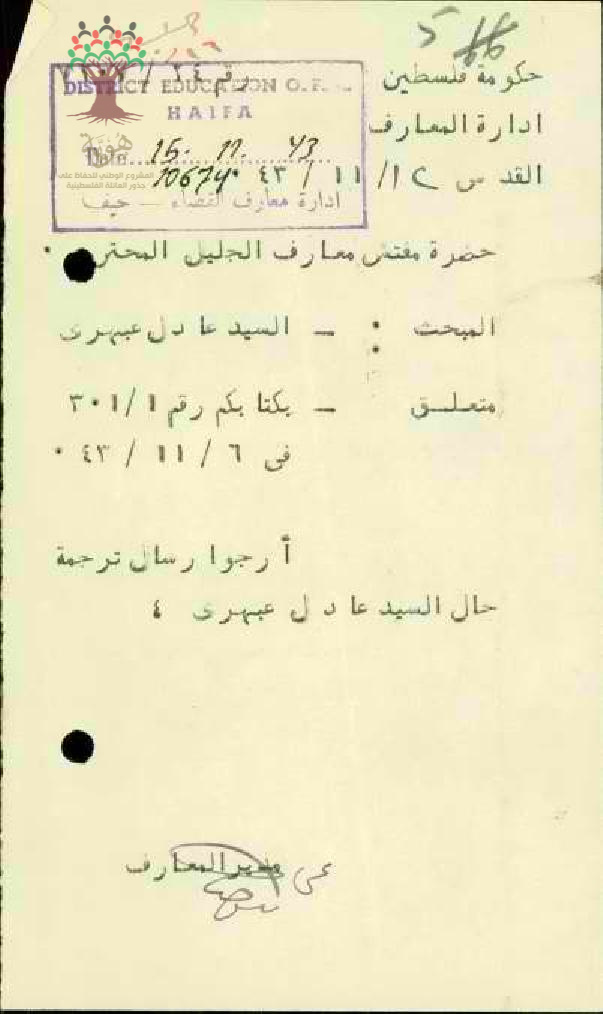 حكومة فلسطين
ادارة المعارف
القدس ١٢/ ١١ / ٤٣
DISTRICT EDUCATION
HAIFA
Date 15. 11. 43
10674
ادارة معارف القضاء — حيفا
هُويّة
المشروع الوطني للحفاظ على
جذور العائلة الفلسطينية
حضرة مفتش معارف الجليل المحترم ٠
المبحث : — السيد عادل عبهرى
متعلق — بكتابكم رقم ٣٠١/١
فى ٦ / ١١ / ٤٣ ٠
أرجوا رسال ترجمة
حال السيد عادل عبهرى ٤
عن مدير المعارف